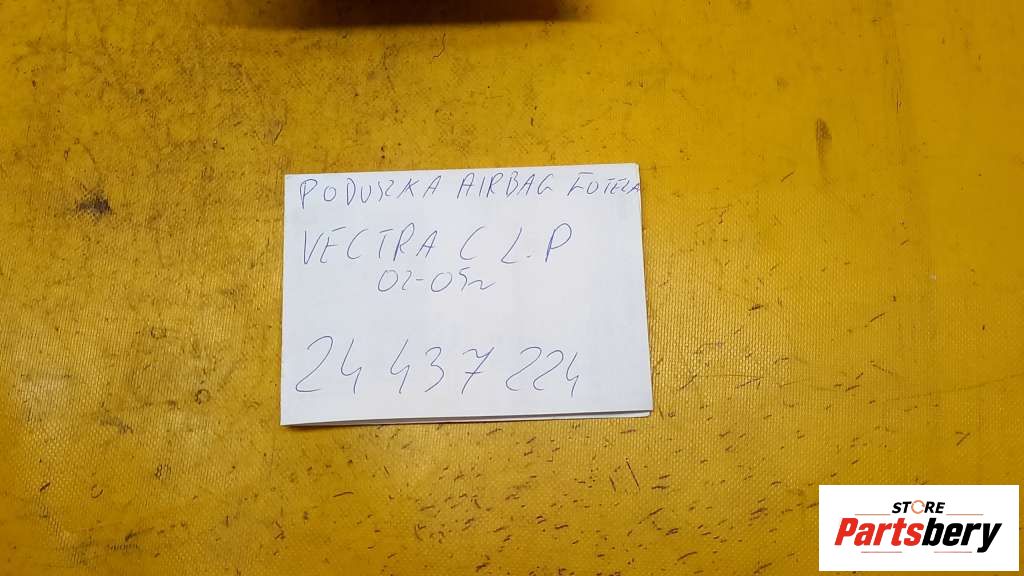 PODUSZKA AIRBAG FOTELA
VECTRA C L.P
02-05r
24 437 224
STORE
Partsbery